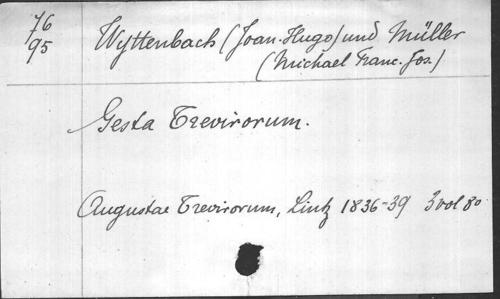 76
95
Wyttenbach (Joan. Hugo) und Müller
(Michael Franc. Jos.)
Gesta Trevirorum.
Augustae Trevirorum, Lintz 1836-39 3 vol 8º